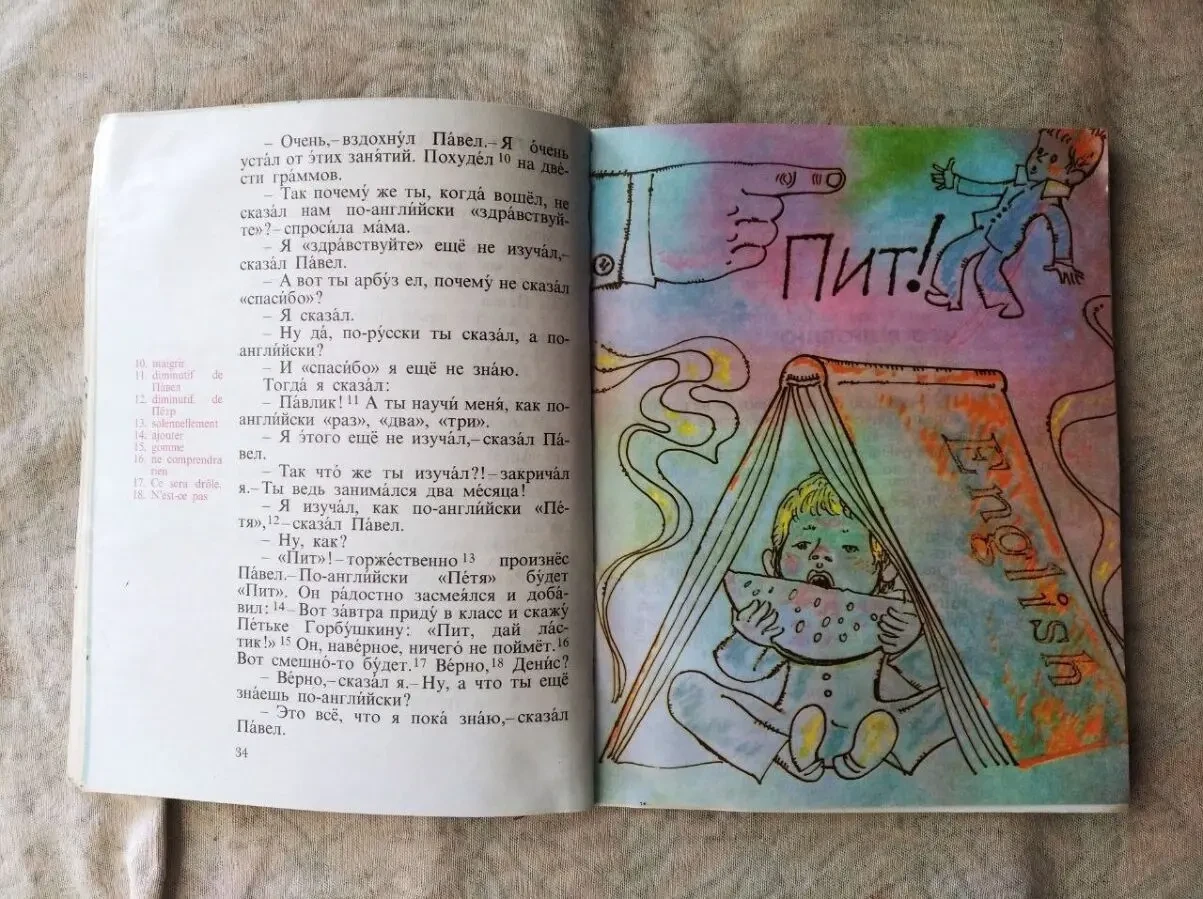 – Очень,–вздохну́л Па́вел.–Я о́чень
уста́л от э́тих заня́тий. Похуде́л 10 на две́-
сти гра́ммов.
– Так почему́ же ты, когда́ вошёл, не
сказа́л нам по-англи́йски «здра́вствуй-
те»?–спроси́ла ма́ма.
– Я «здра́вствуйте» ещё не изуча́л,–
сказа́л Па́вел.
– А вот ты арбу́з ел, почему́ не сказа́л
«спаси́бо»?
– Я сказа́л.
– Ну да, по-ру́сски ты сказа́л, а по-
англи́йски?
– И «спаси́бо» я ещё не зна́ю.
Тогда́ я сказа́л:
– Па́влик! 11 А ты научи́ меня́, как по-
англи́йски «раз», «два», «три».
– Я э́того ещё не изуча́л,–сказа́л Па́-
вел.
– Так что́ же ты изуча́л?!–закрича́л
я.–Ты ведь занима́лся два ме́сяца!
– Я изуча́л, как по-англи́йски «Пе́-
тя»,12–сказа́л Па́вел.
– Ну, как?
– «Пит»!–торже́ственно 13 произнёс
Па́вел.–По-англи́йски «Пе́тя» бу́дет
«Пит». Он ра́достно засмея́лся и доба́-
вил: 14–Вот за́втра приду́ в класс и скажу́
Пе́тьке Горбу́шкину: «Пит, дай ла́с-
тик!» 15 Он, наве́рное, ничего́ не поймёт.16
Вот смешно́-то бу́дет.17 Ве́рно,18 Дени́с?
– Ве́рно,–сказа́л я.–Ну, а что ты ещё
зна́ешь по-англи́йски?
– Это всё, что я пока́ зна́ю,–сказа́л
Па́вел.
34
10. maigrir
11. diminutif de
Па́вел
12. diminutif de
Пётр
13. solennellement
14. ajouter
15. gomme
16. ne comprendra
rien
17. Ce sera drôle.
18. N'est-ce pas
Пит!
English